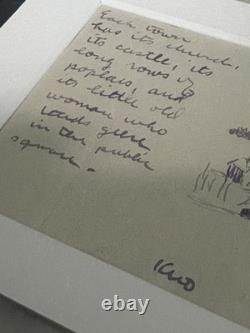 Each town
has its church,
its castle, its
long rows of
poplars, and
its little old
woman who
tends geese
in the public
square.
KWO
© ebth.com